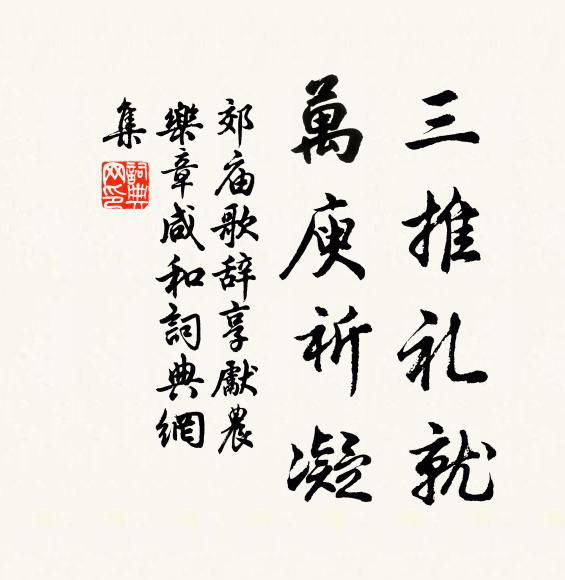 三推礼就
萬庾祈凝
郊庙歌辞享獻農
樂章咸和詞典網
集
詞典網印